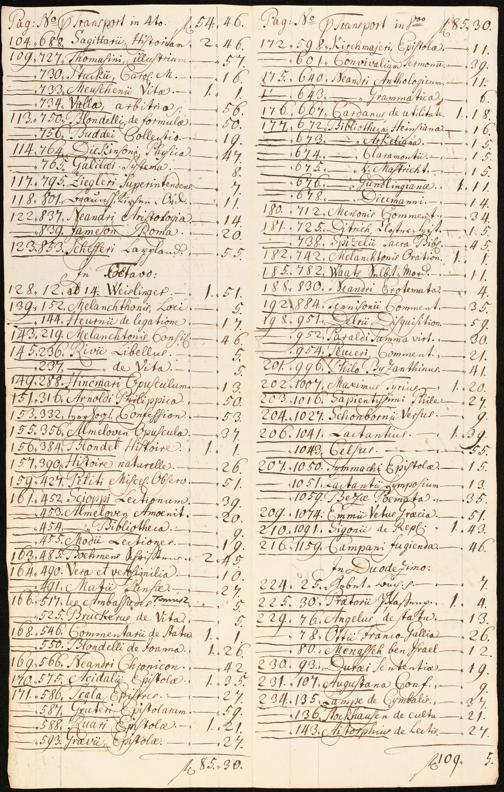 Pag: No Transport in 4to: 54. 46.
104. 688. Sagittarii Historiam 2. 46.
109. 727. Thomasini, illustrium 57.
730. Stuckii, Carol. M. 16.
733. Meuschenii Vitæ 1. 1.
734. Valla, arbitra 56.
113. 750. Blondelli, de formula 50.
756. Buddei Collectio 19.
114. 764. Dickinsoni, 47.
765. Galilæi Systema 8.
117. 795. Ziegleri Superintendens 7.
118. 801. 11.
122. 837. Neandri Aristologia 14.
839. Jameson Roma 20.
123. 853. Schefferi Lappland 55.
In Octavo:
128. 12. ab 14. Weirlinger 1. 51.
139. 152. Melanchthonis, Loci 5.
144. Heurnii de legatione 17.
143. 219. Melanchtonis Consil: 46.
145. 236. Rivii Libellus 5.
237. de Vita 5.
149. 288. Hincmari Opusculum 13.
151. 316. Arnoldi Philippica 50.
153. 332. Confession 53.
155. 356. Almeloven Opuscula 37.
156. 384. Blondel Histoire 1. 1.
157. 390. Histoire naturelle 26.
159. 427. Petiti Miscel: Observ 51.
161. 452. Scioppi Lectionum 39.
453. Almeloven Amoenit 20.
454. Bibliotheca 9.
455. Modii Lectiones 19.
163. 485. Boehmens 2. 45.
164. 490. Vera et verisimilia 10.
491. Mutii Pansæ 27.
166. 517. les Ambassades Tomus 2 5.
525. Bruckerus de Vita 5.
168. 546. Commentarii de Statu 1. 1.
550. Blondelli de Joanna 1. 26.
169. 566. Neandri Chronicon 42.
170. 575. Acidalii Epistolæ 1. 35.
171. 586. Scala Epistres 27.
587. Gruteri Epistolarum 59.
588. Ruari Epistolæ 1. 21.
593. Grævii, Epistolæ 27.
85. 30.
Pag: No Transport in 8vo 85. 30.
172. 598. Kirchmajeri Epistolæ 11.
601. Convivalium Sermonum 39.
175. 640. Neandri Anthologicum 11.
643. Grammatica 6.
176. 667. Cardanus de utilitate 1. 18.
177. 672. Bibliotheca Heinsiana 16.
673. 15.
674. Claramontii 15.
675. v: Mastricht 15.
676. Gundlingiana 1. 11.
678. Diecmanni 14.
180. 712. Menonis Comment 34.
181. 725. Ditrich, 1. 15.
738. Spizelii Sacra Bibl: 45.
182. 742. Melanchtonis Oration: 1. 1.
185. 782. Waats 11.
188. 830. Neandri Erotemata 4.
192. 884. Comment 35.
198. 951. Delrii Disquisition 59.
952. Peraldi Summa virt: 30.
954. Peuceri Comment 21.
201. 996. Philo Byzanthinus 41.
202. 1007. Maximus Tyrius 1. 20.
203. 1016. Sapientissimi Phile 27.
204. 1027. Schonbornii Versus 9.
206. 1041. Lactantius 1. 39.
1043. Celsus 55.
207. 1050. Symmachi Epistolæ 15.
1051. Lactantii Symposium 13.
1059. Bezæ Poemata 35.
209. 1074. Emmii Vetus Græcia 51.
210. 1091. Sigonii de Rep: 1. 43.
216. 1159. Campani fugienta 46.
In Duodecimo:
224. 25. 7.
225. 30. Pratorii 1. 4.
229. 76. Angelus de Statu 13.
78. Ottii Franco-Gallia 26.
80. Menasseh ben Israel 12.
230. 93. Duræi Sententiæ 19.
231. 107. Augustana Conf: 9.
234. 135. Lampe de Cymbalis 27.
136. Stockhausen de cultu 21.
143. de Lectis 27.
109. 5.